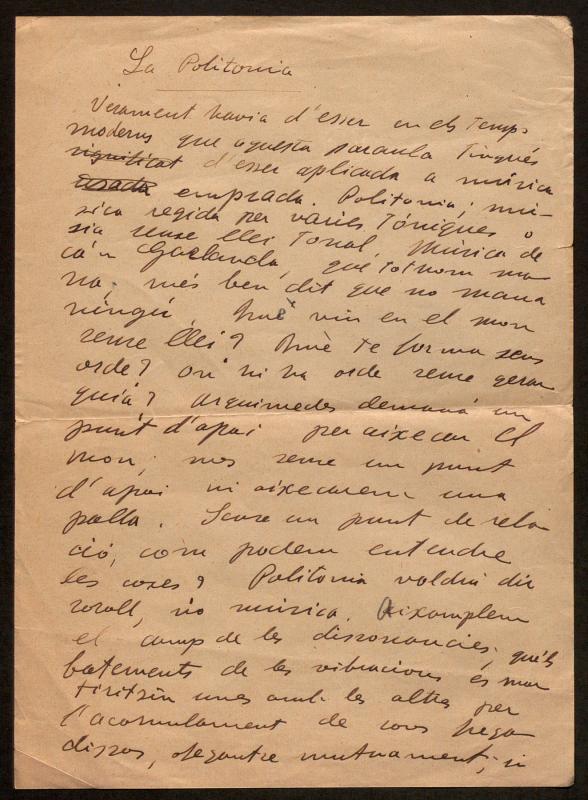 La Politonia
Verament havia d'esser en els temps
moderns que aquesta paraula tingués
significat d'esser aplicada a música
usada emprada. Politonia; mú-
sica regida per varies tóniques o
sia sense llei tonal. Música de
ca'n Garlanda, que tothom ma
na, més ben dit que no mana
ningú. Qué viu en el mon
sense llei? Qué te forma sens
orde? On hi ha orde sense gerar
quia? Arquimedes demaná un
punt d'apoi per aixecar el
mon; mes sense un punt
d'apoi ni aixecarem una
palla. Sense un punt de rela
ció, com podem entendre
les coses? Politonia voldrá dir
soroll, no música. Aixamplem
el camp de les dissonancies, que'ls
batements de les vibracions es mar
tiritzin unes amb les altres per
l'acomulament de sons pega
dissos, ofegantse mutuament; si